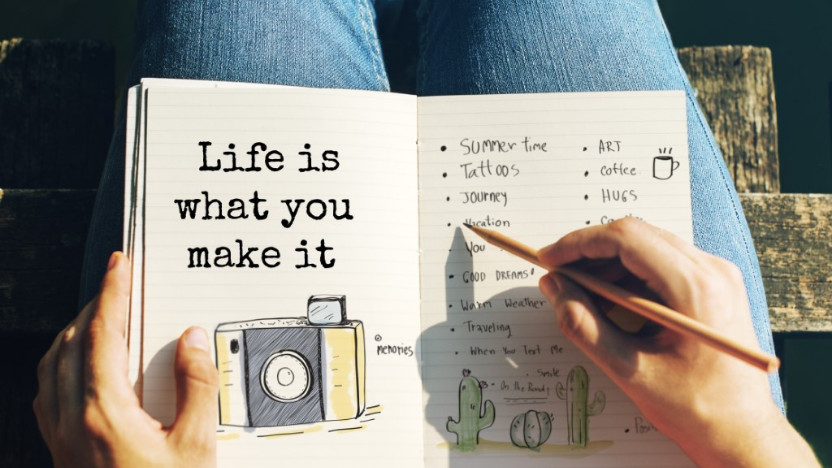 Life is
what you
make it
memories
SUMMER time
Tattoos
JOURNEY
Vacation
You
GOOD DREAMS!
Warm Weather
Traveling
When You Text Me
Smile
On The Road
ART
coffee
HUGS